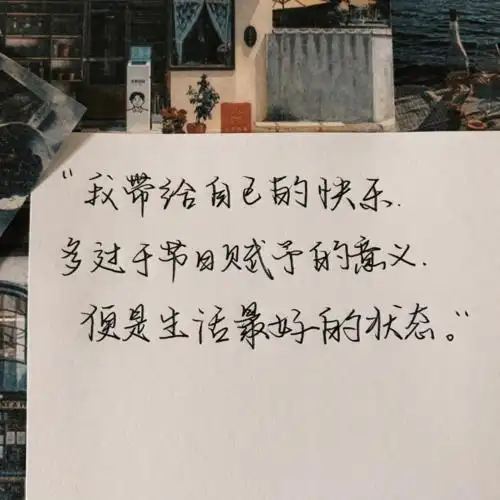 “我带给自己的快乐.
多过于节日赋予的意义.
便是生活最好的状态。”